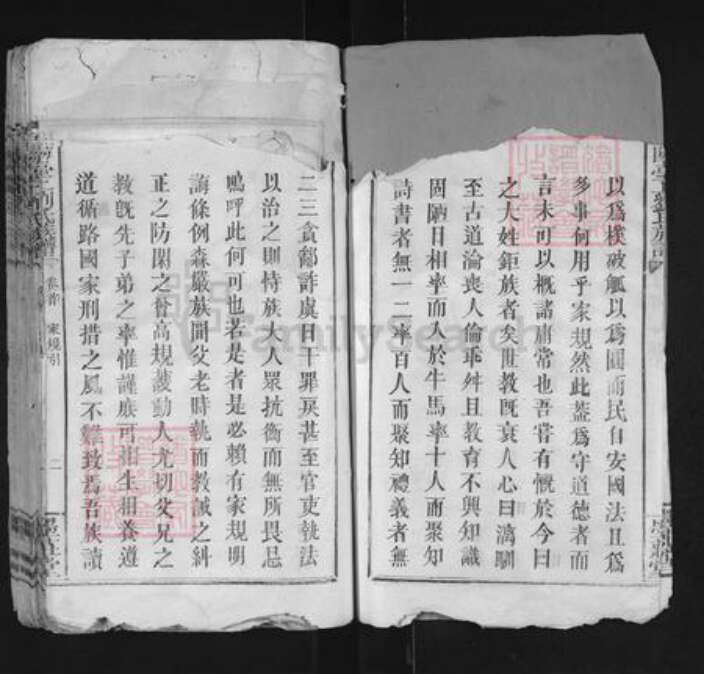 以爲樸破觚以爲圜而民自安國法且爲
多事何用乎家規然此蓋爲守道德者而
言未可以概諸庸常也吾嘗有慨於今日
之大姓鉅族者矣世教既衰人心日漓馴
至古道淪喪人倫乖舛且教育不興知識
固陋日相率而入於牛馬率十人而聚知
詩書者無一二率百人而聚知禮義者無
二三貪鄙詐虞日干罪戾甚至官吏執法
以治之則恃族大人眾抗衡而無所畏忌
嗚呼此何可也若是者是必賴有家規明
誨條例森嚴族間父老時執而教誡之糾
正之防閑之
高規
動人尤切父兄之
教既先子弟之率惟謹庶可相生相養遵
道循路國家刑措之風不難致焉吾族讀
劉氏族譜
卷首 家規引
二
FamilySearch